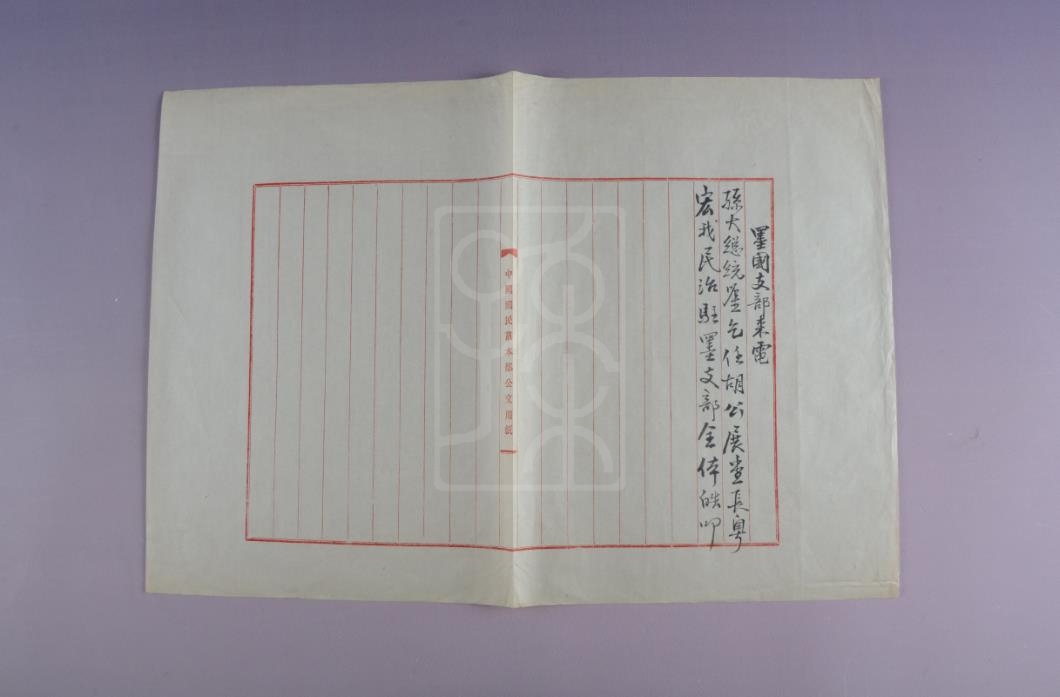 墨國支部來電
孫大總統鑒乞任胡公展堂長粵
宏我民治駐墨支部全体皓叩
中國國民黨本部公文用紙